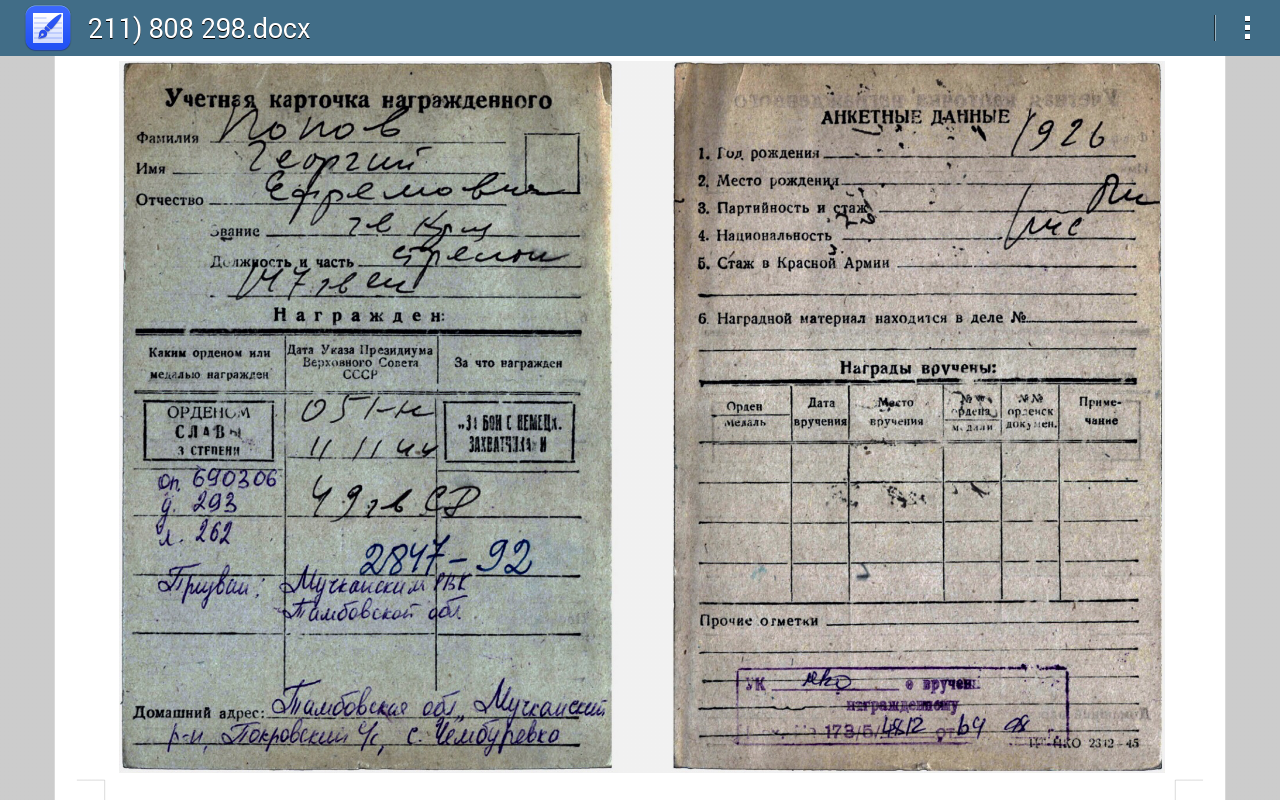 211) 808 298.docx
Учетная карточка награжденного
Фамилия Попов
Имя Георгий
Отчество Ефремович
Звание гв Кр-ц
Должность и часть стрелок
147 гв сп
Награжден:
Каким орденом или медалью награжден
Дата Указа Президиума Верховного Совета СССР
За что награжден
ОРДЕНОМ
СЛАВЫ
3 СТЕПЕНИ
051-н
11 11 44
„ЗА БОИ С НЕМЕЦК.
ЗАХВАТЧИКАМИ
оп 690306
д. 293
л. 262
49 гв СД
2847-92
Призван: Мучкапским РВК
Тамбовской обл.
Домашний адрес: Тамбовская обл, Мучкапский
р-н, Покровский с/с, с. Чембуревко
АНКЕТНЫЕ ДАННЫЕ
1. Год рождения 1926
2. Место рождения
3. Партийность и стаж
4. Национальность рус
5. Стаж в Красной Армии
6. Наградной материал находится в деле №
Награды вручены:
Орден
медаль
Дата вручения
Место вручения
№№ ордена
медали
№№ орденск докумен.
Приме-
чание
Прочие отметки
УК о вручен.
награжденному
173/5/ от 64
НКО 2312-45